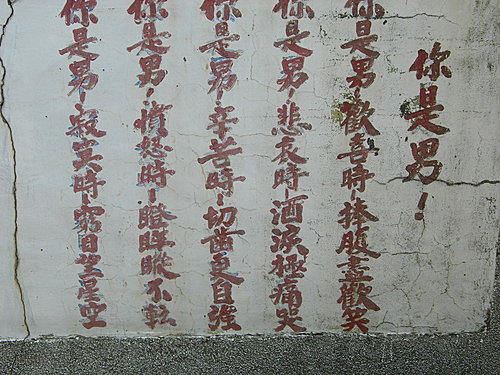 你是男!
你是男!歡喜時捧腹盡歡笑
你是男!悲哀時洒淚極痛哭
你是男!辛苦時切齒更自強
你是男!憤怒時瞪眸不転
你是男!寂寞時窮目望星空